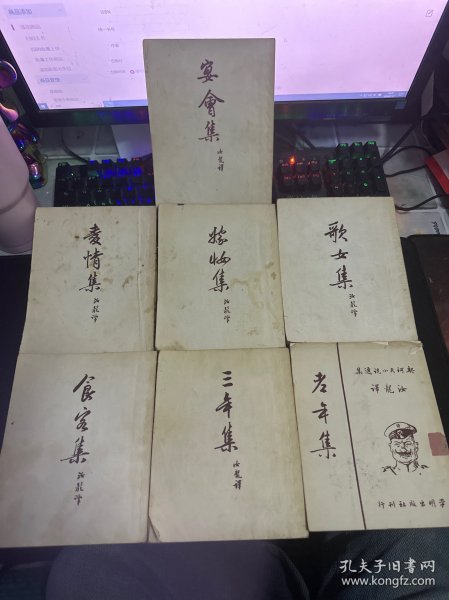 宴會集
汝龍譯
愛情集
汝龍譯
妳物集
汝龍譯
歌女集
汝龍譯
食客集
汝龍譯
三年集
汝龍譯
老年集
集選說小夫訶契
譯龍汝
行刊社版出明平
孔夫子旧书网
www.kongfz.com